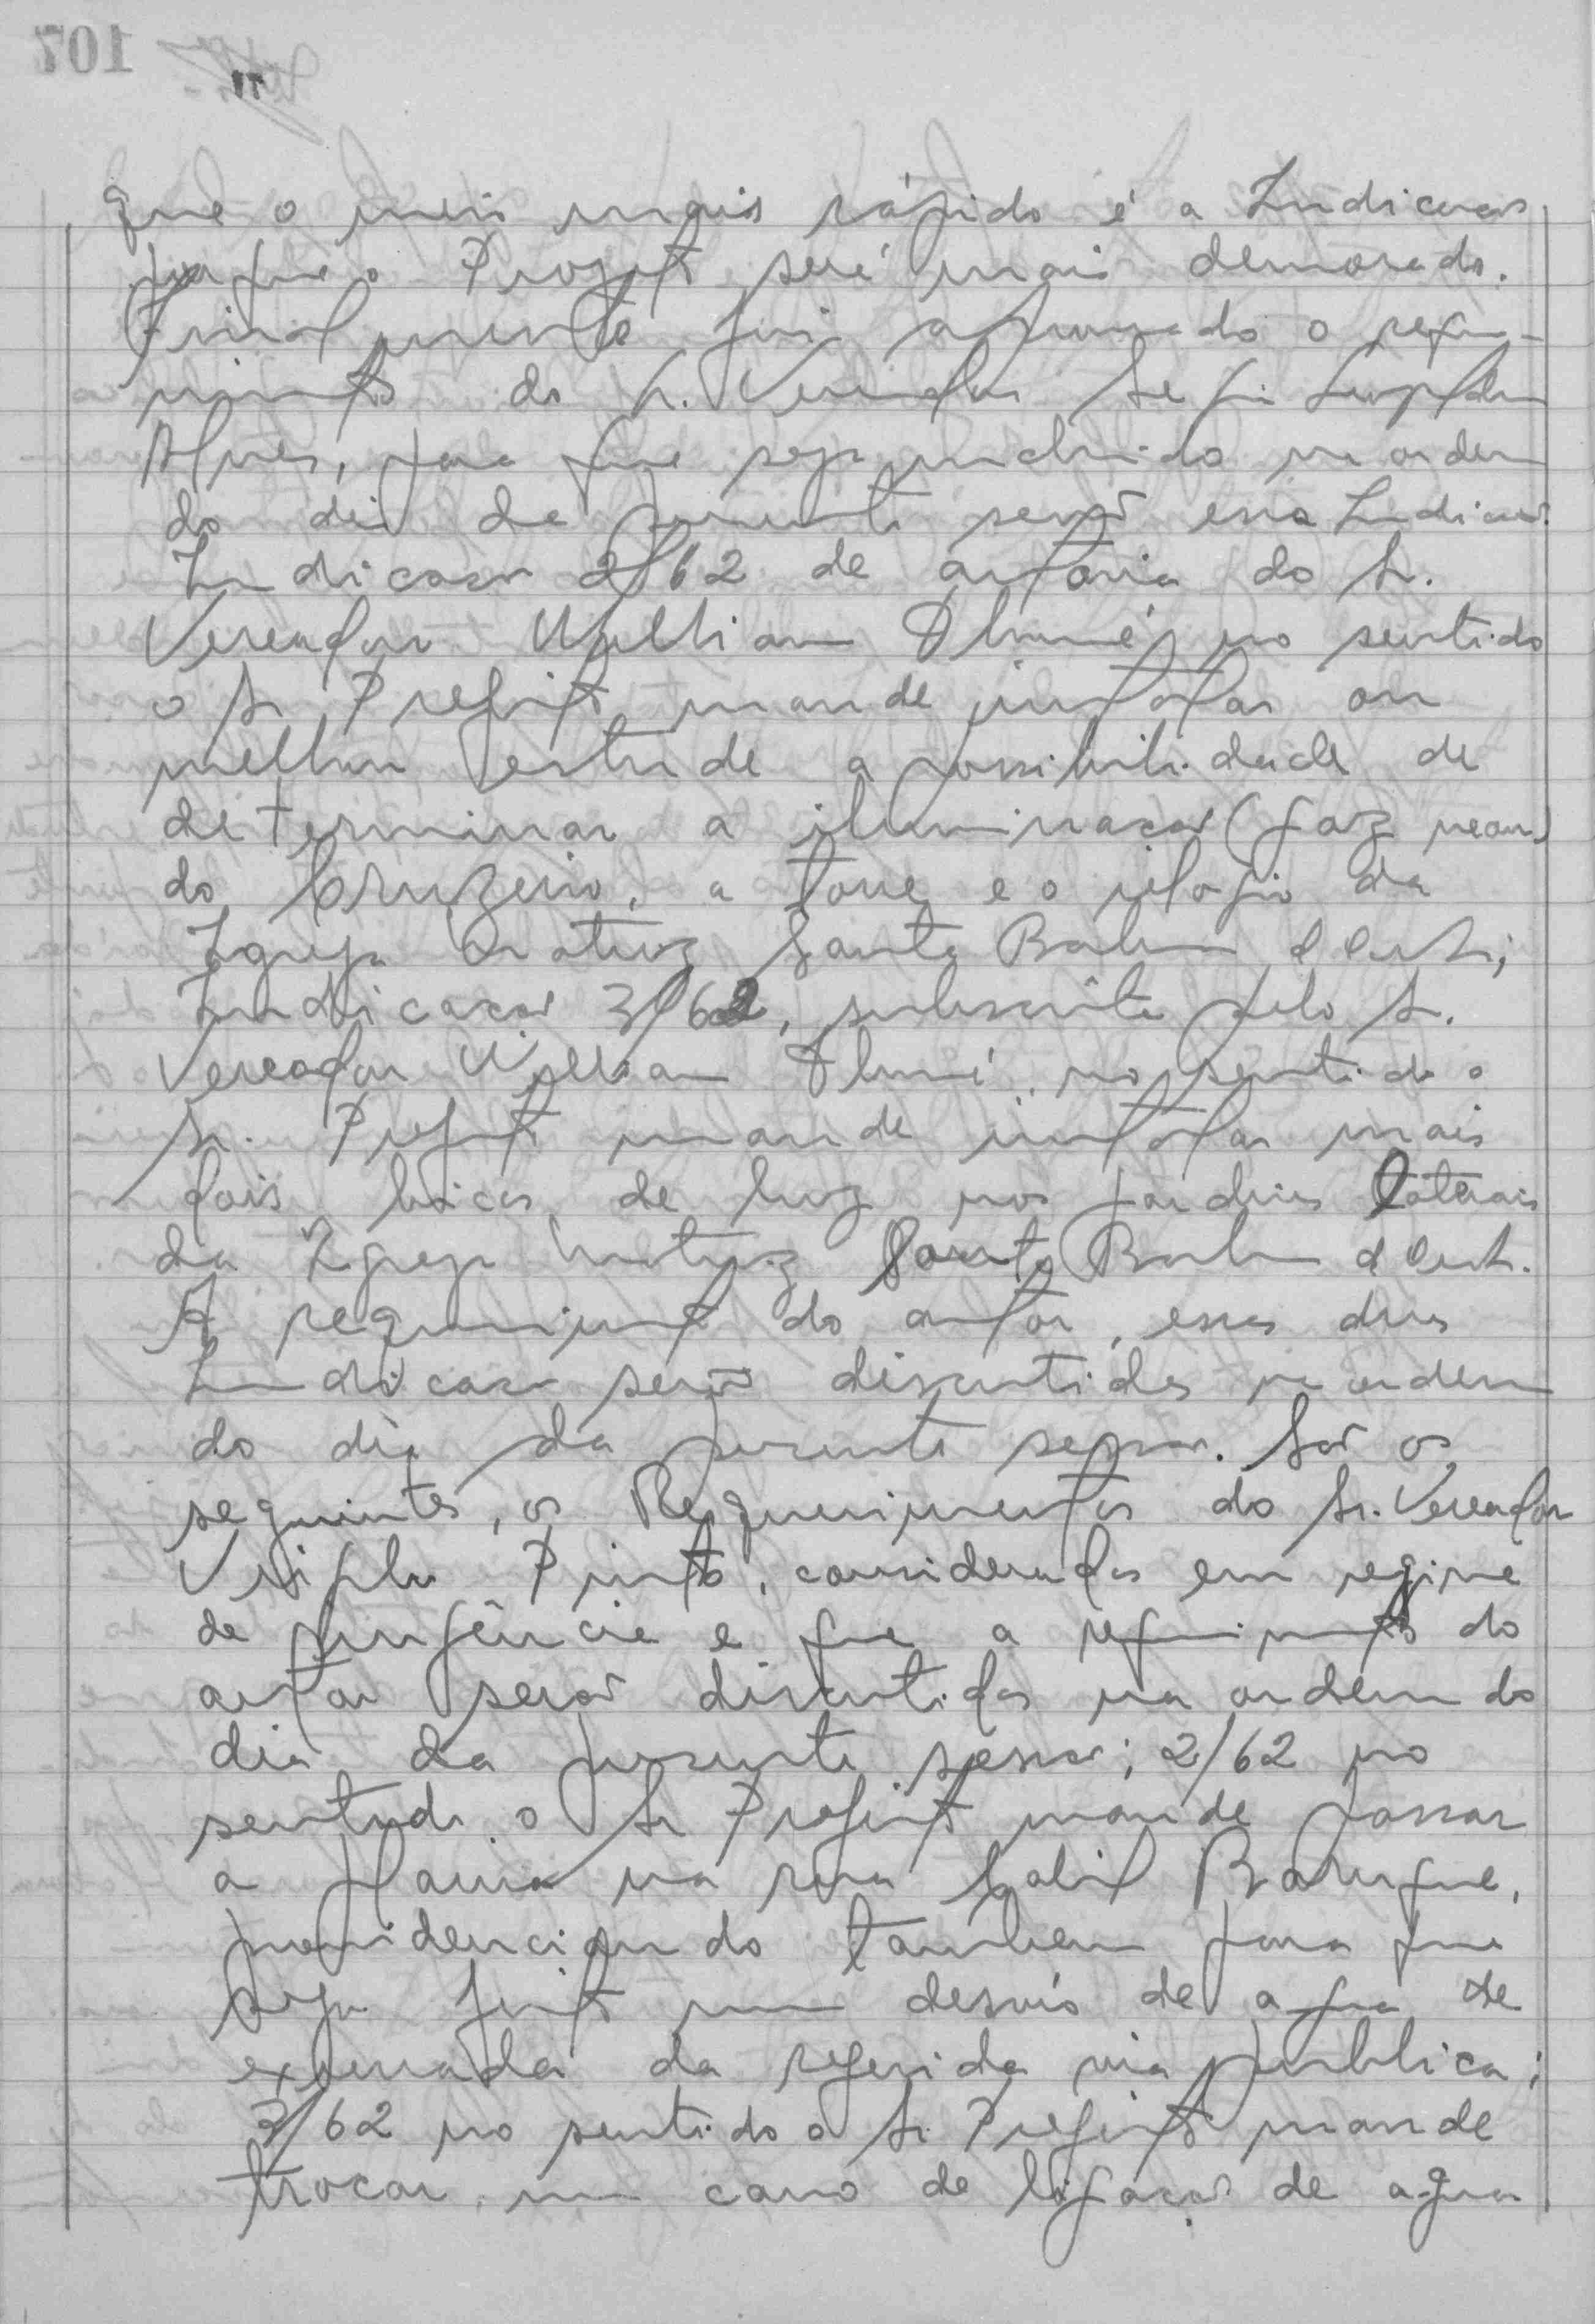 que o meio mais rápido é a Indicacao
porque o Projeto será mais demorado.
Finalmente foi aprovado o reque-
rimento do Sr. Vereador
Alves, para que seja incluido na ordem
do dia da presente sessão essa Indicac.
Indicacao 2/62 de autoria do Sr.
Vereador William no sentido
o Sr Prefeito mande instalar ou
melhor estude a possibilidade de
determinar a iluminacao (gaz neon)
do Cruzeiro, a torre e o relogio da
Igreja Matriz Santa Barbara d'Oeste;
Indicacao 3/62, subscrita pelo Sr.
Vereador William no sentido o
Sr. Prefeito mande instalar mais
dois bicos de luz nos jardins laterais
da Igreja Matriz Santa Barbara d'Oeste.
A requerimento do autor, essas duas
Indicacao serão discutidas na ordem
do dia da presente sessao. São os
seguintes, os Requerimentos do Sr. Vereador
Pinto, considerados em regime
de urgência e que a requerimento do
autor serão discutidos na ordem do
dia da presente sessao; 2/62 no
sentido o Sr Prefeito mande passar
a plaina na rua Calil Baruque,
providenciando tambem para que
seja feito um desvio de agua de
exurrada da referida via publica;
3/62 no sentido o Sr. Prefeito mande
trocar um cano de ligacao de agua